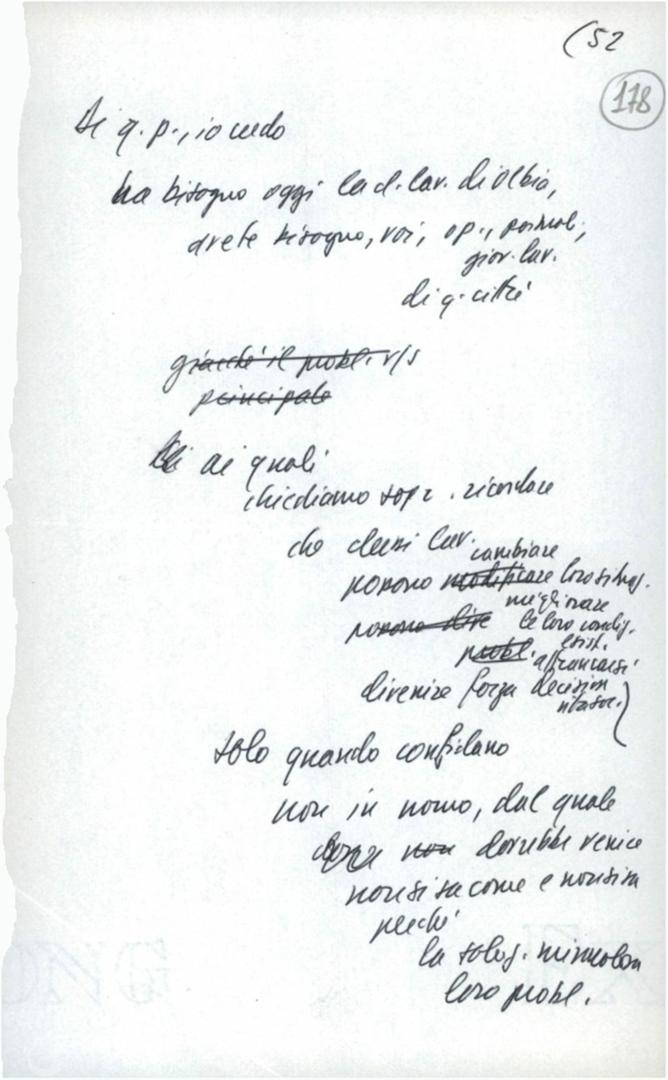 (52
178
Di q. p., io credo
ha bisogno oggi la cl. lav. di Olbia,
avete bisogno, voi, op., 
giov. lav.
di q. città
giacché il probl. v/s
principale
ai quali
chiediamo sopr. ricordare
che classi lav.
cambiare
possono modificare loro situaz.
migliorare
possono dire le loro condiz.
esist.
probl. affrancarsi
divenire forza decisiva
vita soc.)
solo quando confidano
non in uomo, dal quale
non dovrebbe venire
non si sa come e non si sa
perché
la soluz. miracolosa
loro probl.